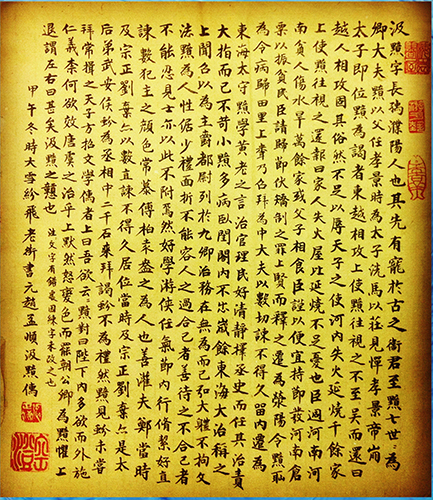 汲黯字長孺濮陽人也其先有寵於古之衛君至黯七世為
卿大夫黯以父任孝景時為太子洗馬以莊見憚孝景帝崩
太子即位黯為謁者東越相攻上使黯往視之不至吳而還曰
越人相攻固其俗然不足以辱天子之使河內失火延燒千餘家
上使黯往視之還報曰家人失火屋比延燒不足憂也臣過河南河
南貧人傷水旱萬餘家或父子相食臣謹以便宜持節發河南倉
粟以振貧民臣請歸節伏矯制之罪上賢而釋之遷為滎陽令黯耻
為令病歸田里上聞乃召拜為中大夫以數切諫不得久留內遷為
東海太守黯學黃老之言治官理民好清靜擇丞史而任其治責
大指而已不苛小黯多病臥閨閤內不出歲餘東海大治稱之
上聞召以為主爵都尉列於九卿治務在無為而已弘大體不拘文
法黯為人性倨少禮面折不能容人之過合己者善待之不合己者
不能忍見士亦以此不附焉然好學游俠任氣節內行脩絜好直
諫數犯主之顏色常慕傅柏袁盎之為人也善灌夫鄭當時
及宗正劉棄亦以數直諫不得久居位當時及宗正劉棄亦是太
后弟武安侯蚡為丞相中二千石來拜謁蚡不為禮然黯見蚡未嘗
拜常揖之天子方招文學儒者上曰吾欲云云黯對曰陛下內多欲而外施
仁義柰何欲效唐虞之治乎上默然怒變色而罷朝公卿為黯懼上
退謂左右曰甚矣汲黯之戇也 注文字有錯處因陳字未改之也
甲午冬時大雪紛飛老街書元趙孟頫汲黯傳